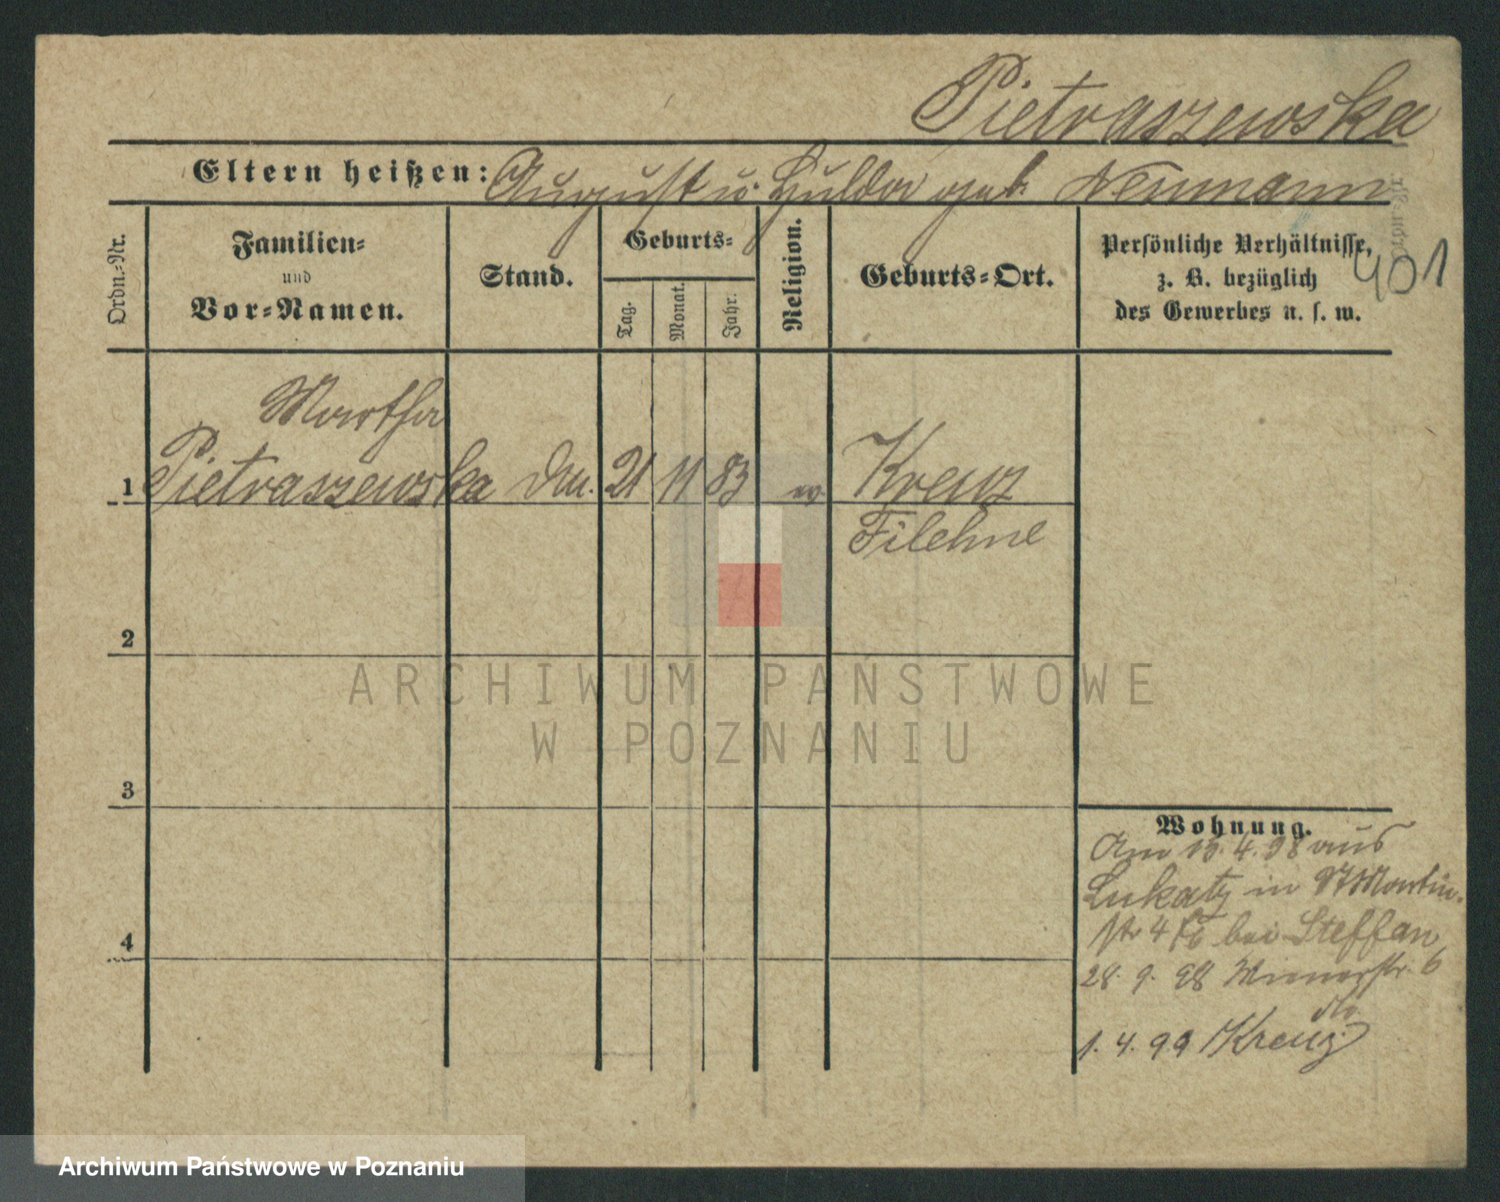 Pietraszewska
Eltern heißen: August u. Hulda geb. Neumann
Ordn.-Nr.
Familien-
und
Vor-Namen.
Stand.
Geburts-
Tag.
Monat.
Jahr.
Religion.
Geburts-Ort.
Persönliche Verhältnisse,
z. B. bezüglich
des Gewerbes u. s. w.
401
Martha
1 Pietraszewska 21 11 83 ev Kreuz
Filehne
2
3
4
ARCHIWUM PAŃSTWOWE
W POZNANIU
Wohnung.
Am 4. 98 aus
Lukatz in St Martin-
str 4 bei Steffan
28. 9. 98 6
1. 4. 99 Kreuz
Archiwum Państwowe w Poznaniu